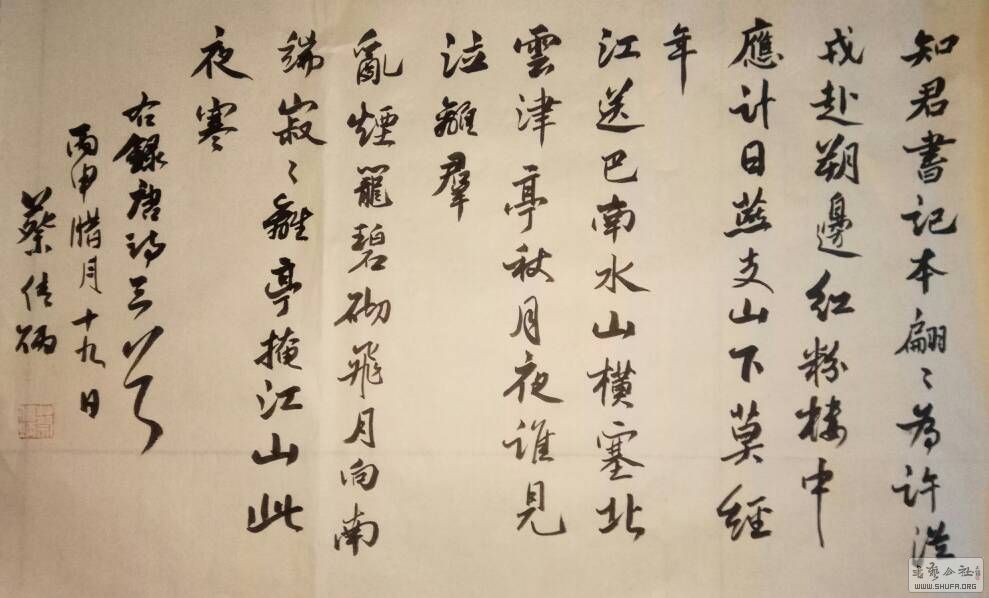 知君書記本翩〻為許從
戎赴朔邊紅粉樓中
應計日燕支山下莫經
年
江送巴南水山橫塞北
雲津亭秋月夜誰見
泣離羣
亂煙籠碧砌飛月向南
端寂〻離亭掩江山此
夜寒
右錄唐詩三首
丙申腊月十九日
蔡炳
書藝公社
WWW.SHUFA.ORG